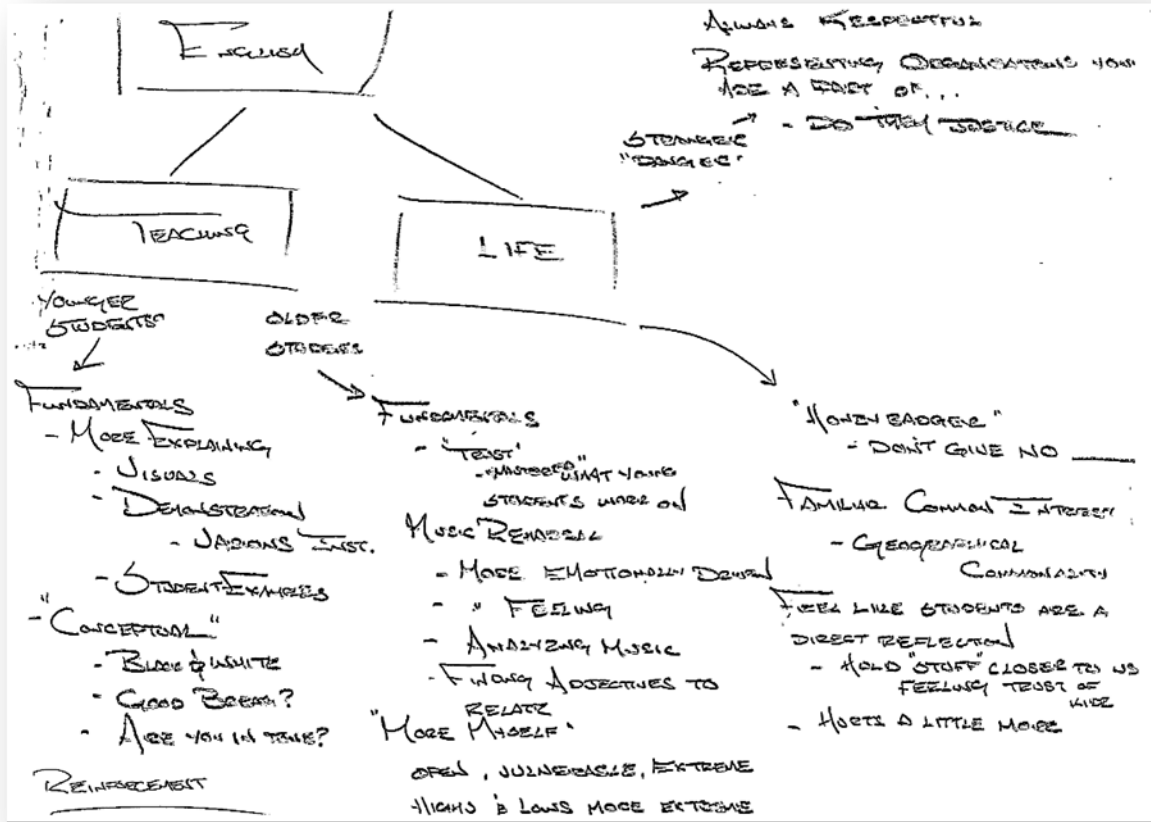 ENGLISH
ALWAYS RESPECTFUL
REPRESENTING ORGANIZATIONS YOU
ARE A PART OF...
- DO THEM JUSTICE
STRANGER
"DANGER"
TEACHING
LIFE
YOUNGER
STUDENTS
OLDER
STUDENTS
FUNDAMENTALS
- MORE EXPLAINING
- VISUALS
- DEMONSTRATION
- VARIOUS INST.
- STUDENT EXAMPLES
- "CONCEPTUAL"
- BLACK & WHITE
- GOOD BREATH?
- ARE YOU IN TUNE?
REINFORCEMENT
FUNDAMENTALS
- "TRUST"
- "MASTERED" WHAT YOUNG
STUDENTS WORK ON
MUSIC REHEARSAL
- MORE EMOTIONALLY DRIVEN
- " FEELING
- ANALYZING MUSIC
- FINDING ADJECTIVES TO
RELATE
"MORE MYSELF"
OPEN, VULNERABLE, EXTREME
HIGHS & LOWS MORE EXTREME
"HONEYBADGER"
- DON'T GIVE NO ____
FAMILIAR COMMON INTEREST
- GEOGRAPHICAL
COMMONALITY
FEEL LIKE STUDENTS ARE A
DIRECT REFLECTION
- HOLD "STUFF" CLOSER TO US
FEELING TRUST OF
KIDS
- HURTS A LITTLE MORE